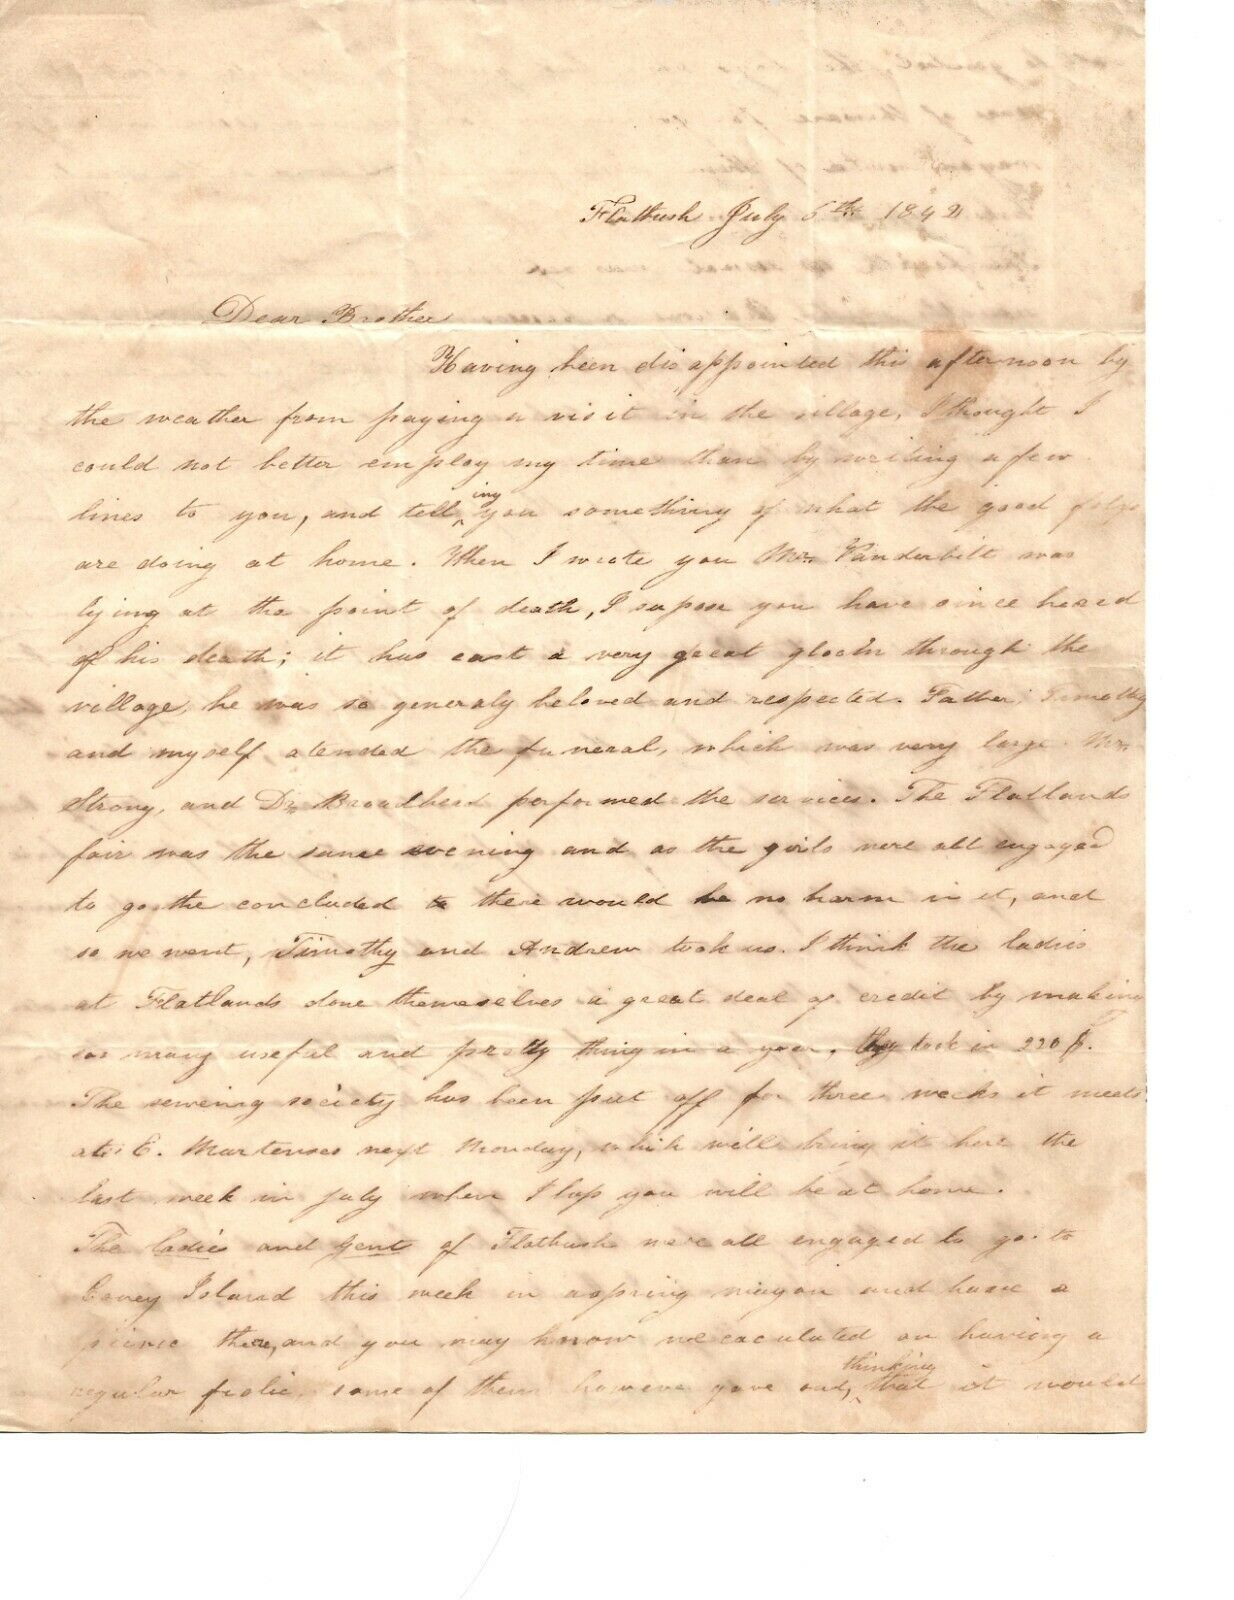 Flatbush July 6th 1842
Dear Brother
Having been disappointed this afternoon by
the weather from paying a visit in the village, I thought I
could not better employ my time than by writing a few
lines to you, and tell^ing you something of what the good folgs
are doing at home. When I wrote you Mr. Vanderbilt was
lying at the point of death, I supose you have since heard
of his death; it has cast a very great gloom through the
village, he was so generaly beloved and respected. Father, Timothy
and myself atended the funeral, which was very large. Mr.
Strong, and Dr. Broadhead performed the services. The Flatlands
fair was the same evening and as the girls were all engaged
to go the concluded there would be no harm in it, and
so we went, Timothy and Andrew took us. I think the ladies
at Flatlands done themeselves a great deal of credit by making
so many useful and pretty thing in a year, they took in 220 $.
The sewering society has been put off for three weeks it meets
at E. Martenses next Monday, which will bring it here the
last week in July when I hop you will be at home.
The ladies and gent of Flatbush were all engaged to go to
Coney Island this week in a spring wagon and have a
picnic there, and you may know we caculated on having a
regular frolic, some of them however gave out, ^thinking that it would